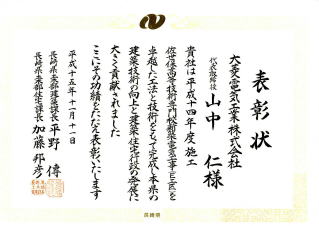 表彰状
大菱電気工業株式会社
代表取締役
山中 仁様
貴社は平成十四年度施工
佐世保高等技術専門校新築電気工事(三工区)を
卓越した工法と技術をもって完成し本県の
建築技術の向上と建築住宅行政の発展に
大きく貢献されました
ここにその功績をたたえ表彰いたします
平成十五年十一月十一日
長崎県土木部建築課長 平野 傳
長崎県土木部住宅課長 加藤邦彦
長崎県